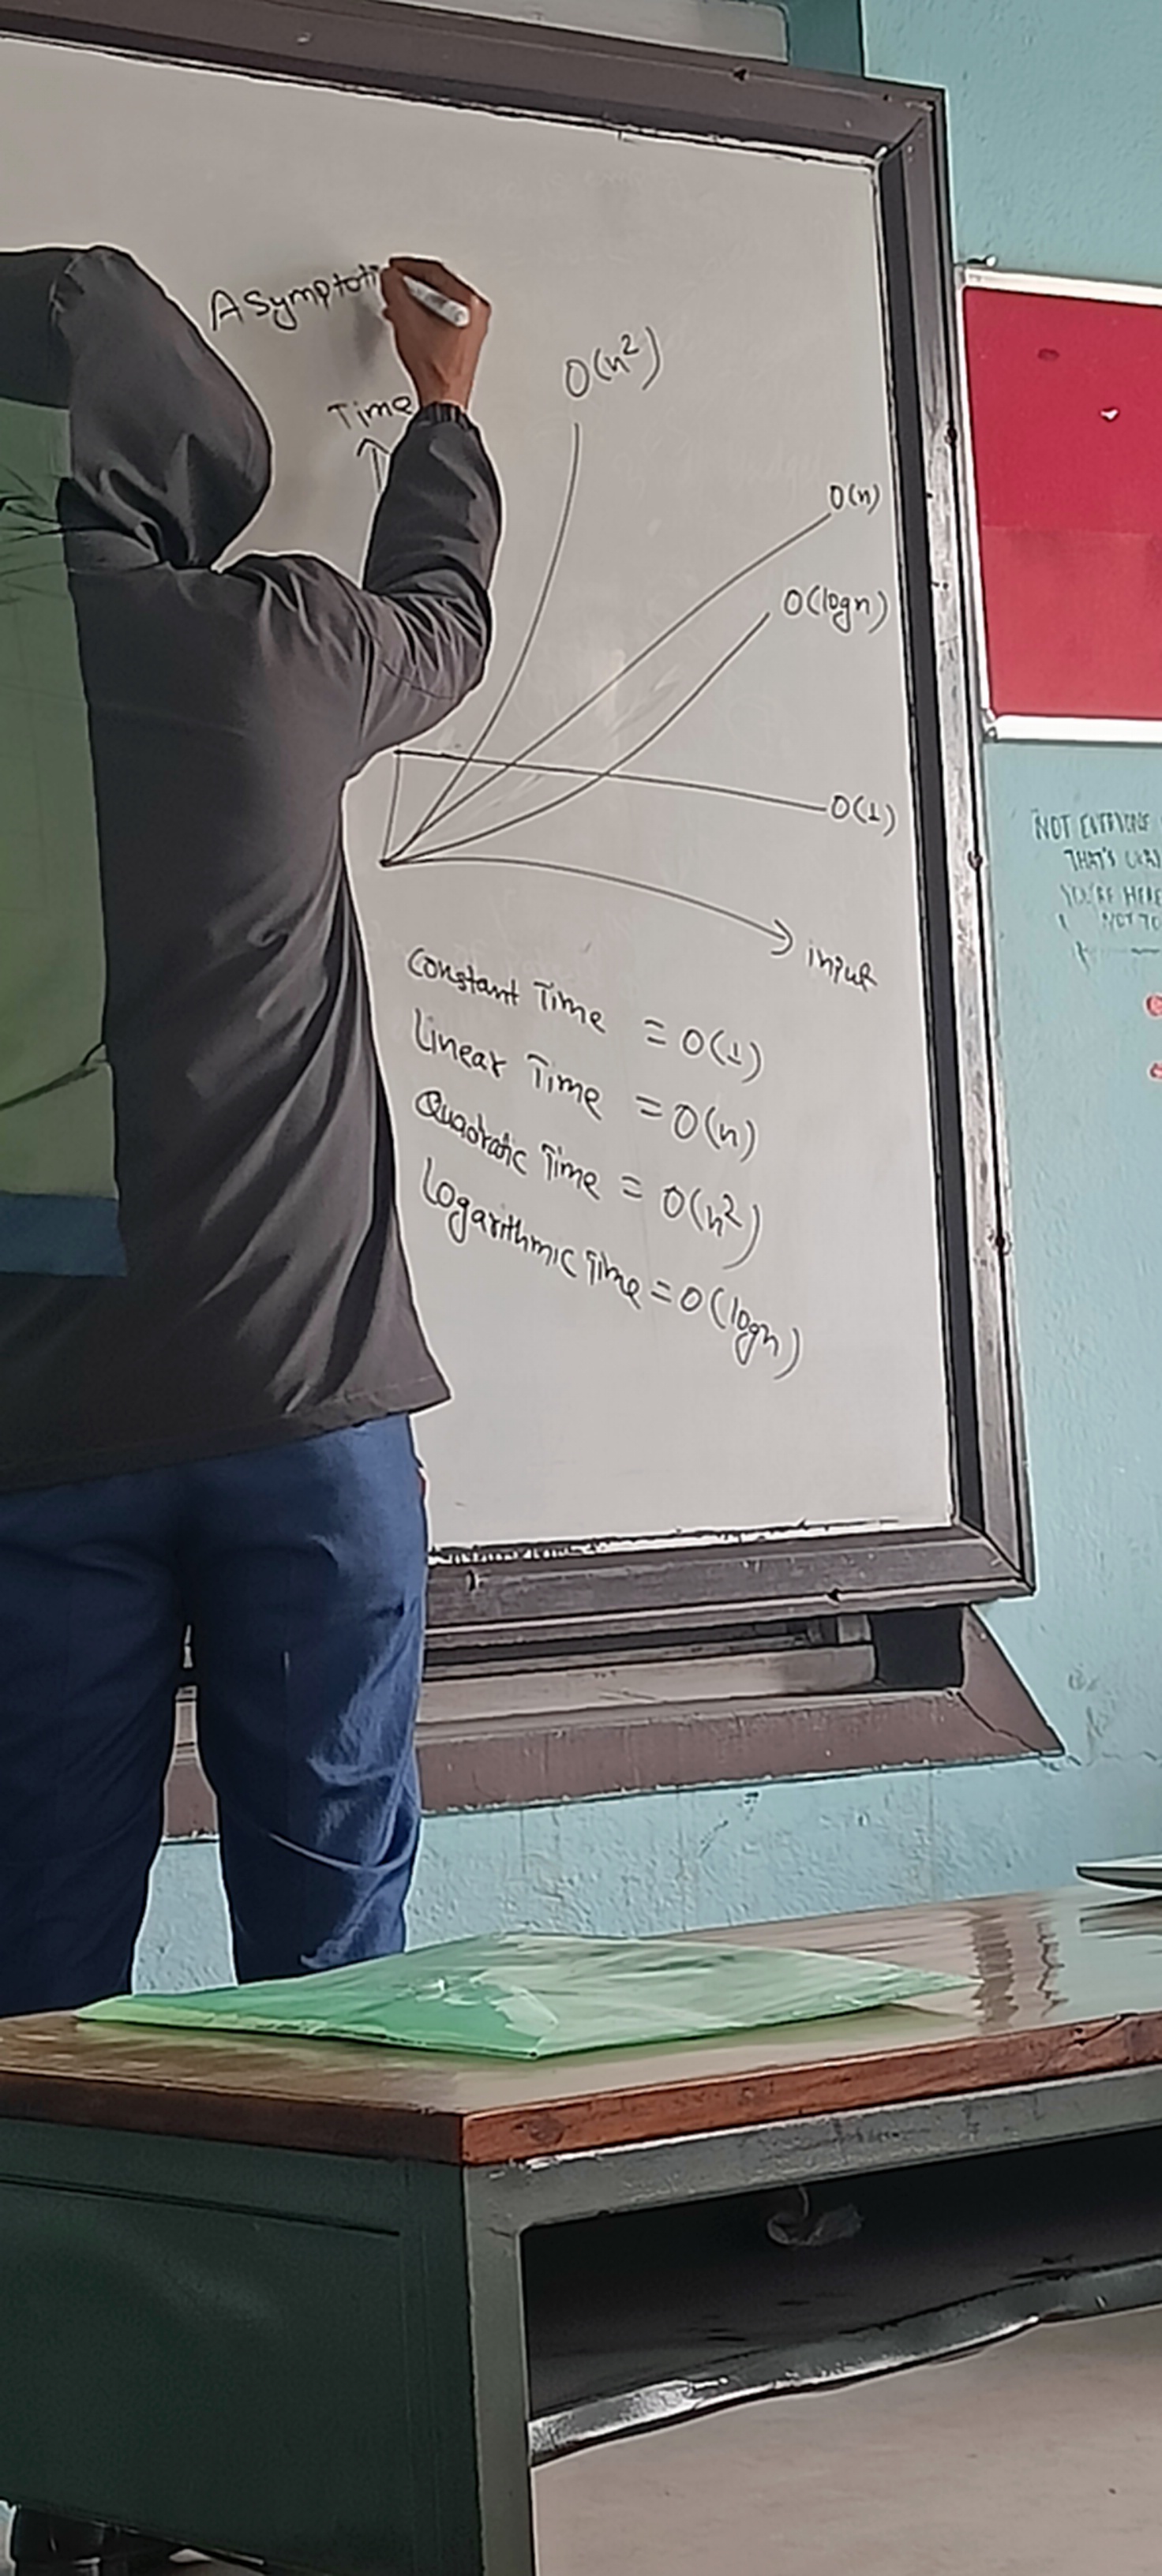 Asymptoti
Time
O(n²)
O(n)
O(logn)
O(1)
input
Constant Time = O(1)
Linear Time = O(n)
Quadratic Time = O(n²)
Logarithmic Time = O(logn)
NOT
THAT'S
YOU'RE HERE
NOT TO